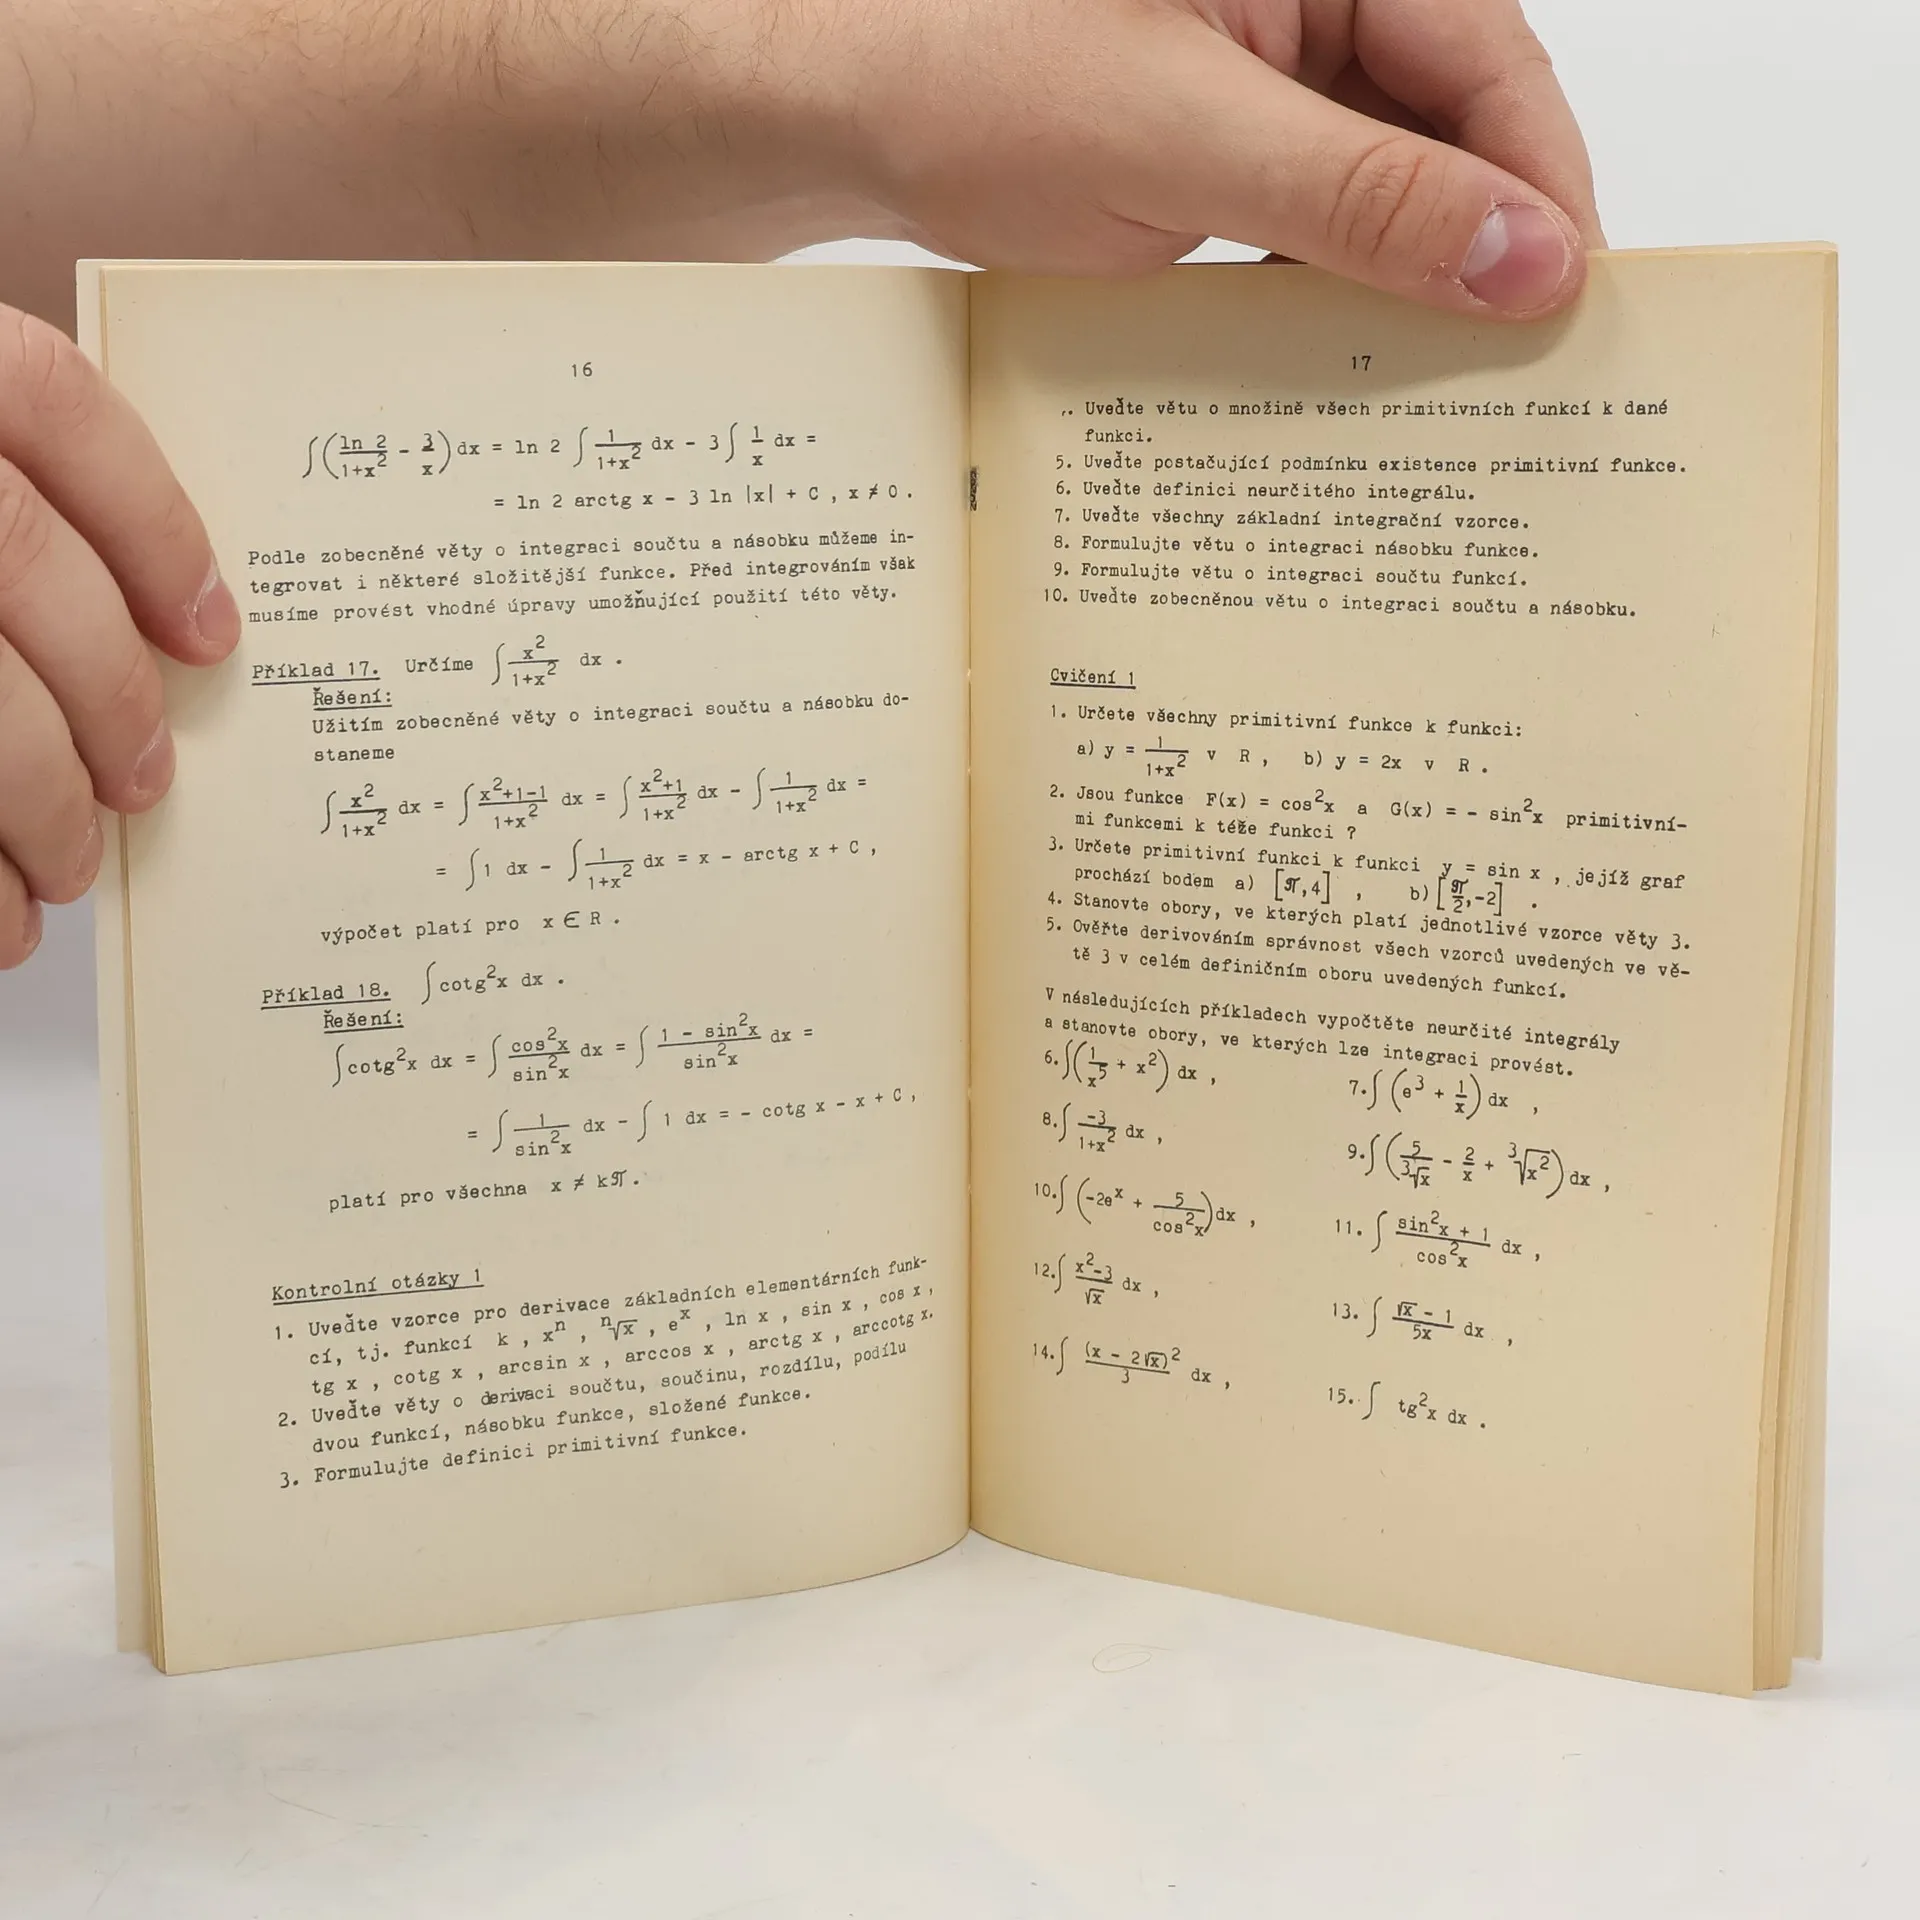 16
∫(ln 2/1+x² - 3/x) dx = ln 2 ∫ 1/1+x² dx - 3 ∫ 1/x dx =
= ln 2 arctg x - 3 ln |x| + C , x ≠ 0 .
Podle zobecněné věty o integraci součtu a násobku můžeme in-
tegrovat i některé složitější funkce. Před integrováním však
musíme provést vhodné úpravy umožňující použití této věty.
Příklad 17. Určíme ∫ x²/1+x² dx .
Řešení:
Užitím zobecněné věty o integraci součtu a násobku do-
staneme
∫ x²/1+x² dx = ∫ x²+1-1/1+x² dx = ∫ x²+1/1+x² dx - ∫ 1/1+x² dx =
= ∫ 1 dx - ∫ 1/1+x² dx = x - arctg x + C ,
výpočet platí pro x ∈ R .
Příklad 18. ∫ cotg²x dx .
Řešení:
∫ cotg²x dx = ∫ cos²x/sin²x dx = ∫ 1 - sin²x/sin²x dx =
= ∫ 1/sin²x dx - ∫ 1 dx = - cotg x - x + C ,
platí pro všechna x ≠ kπ .
Kontrolní otázky 1
1. Uveďte vzorce pro derivace základních elementárních funk-
cí, tj. funkcí k , xⁿ , ⁿ√x , eˣ , ln x , sin x , cos x ,
tg x , cotg x , arcsin x , arccos x , arctg x , arccotg x.
2. Uveďte věty o derivaci součtu, součinu, rozdílu, podílu
dvou funkcí, násobku funkce, složené funkce.
3. Formulujte definici primitivní funkce.
17
Uveďte větu o množině všech primitivních funkcí k dané
funkci.
5. Uveďte postačující podmínku existence primitivní funkce.
6. Uveďte definici neurčitého integrálu.
7. Uveďte všechny základní integrační vzorce.
8. Formulujte větu o integraci násobku funkce.
9. Formulujte větu o integraci součtu funkcí.
10. Uveďte zobecněnou větu o integraci součtu a násobku.
Cvičení 1
1. Určete všechny primitivní funkce k funkci:
a) y = 1/1+x² v R , b) y = 2x v R .
2. Jsou funkce F(x) = cos²x a G(x) = - sin²x primitivní-
mi funkcemi k téže funkci ?
3. Určete primitivní funkci k funkci y = sin x , jejíž graf
prochází bodem a) [π,4] , b) [π/2,-2] .
4. Stanovte obory, ve kterých platí jednotlivé vzorce věty 3.
5. Ověřte derivováním správnost všech vzorců uvedených ve vě-
tě 3 v celém definičním oboru uvedených funkcí.
V následujících příkladech vypočtěte neurčité integrály
a stanovte obory, ve kterých lze integraci provést.
6. ∫(1/x⁵ + x²) dx , 7. ∫(e³ + 1/x) dx ,
8. ∫ -3/1+x² dx , 9. ∫(5/³√x - 2/x + ³√x²) dx ,
10. ∫(-2eˣ + 5/cos²x) dx , 11. ∫ sin²x + 1/cos²x dx ,
12. ∫ x²-3/√x dx , 13. ∫ √x - 1/5x dx ,
14. ∫ (x - 2√x)²/3 dx , 15. ∫ tg²x dx .